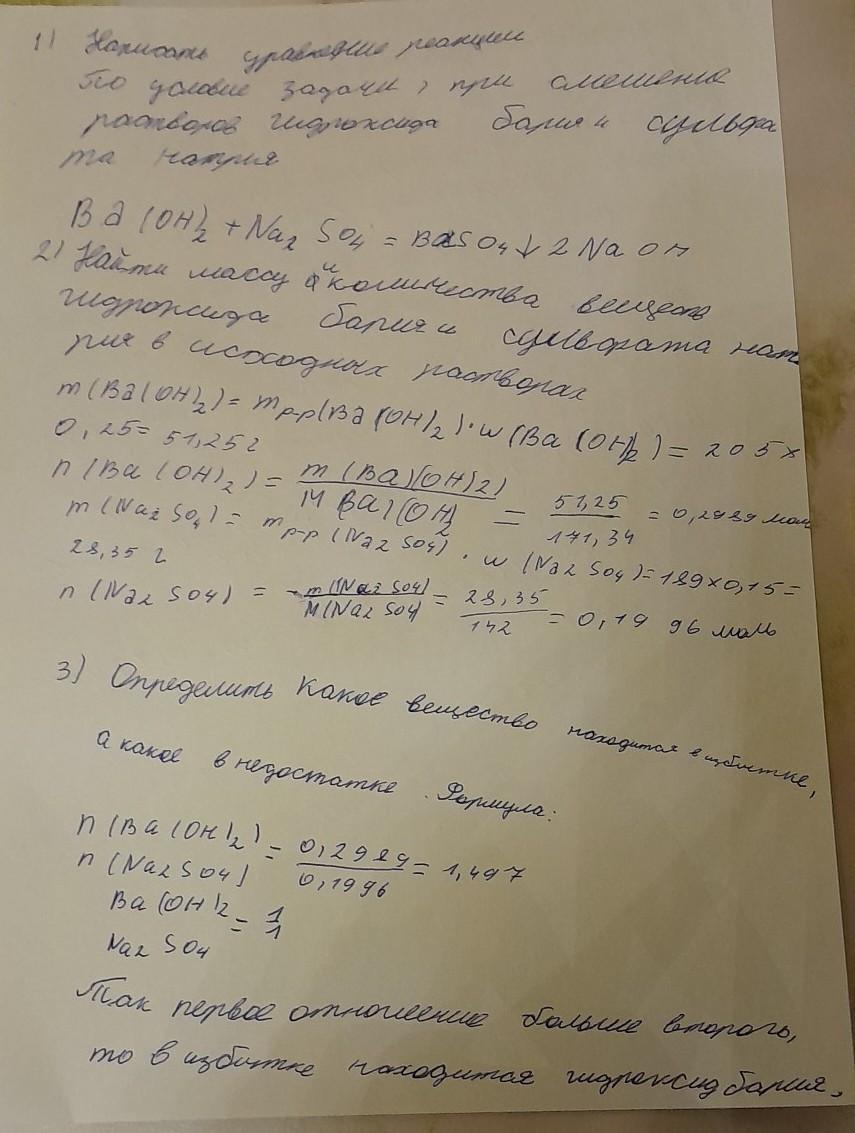 1) Написать уравнение реакции
По условие задачи, при смешение
растворов гидроксида бария и сульфа
та натрия
Ba(OH)2 + Na2SO4 = BaSO4↓ 2NaOH
2) Найти массу и количества веществ
гидроксида бария и сульфата нат
рия в исходных растворах
m(Ba(OH)2) = mр-р(Ba(OH)2) · w(Ba(OH)2) = 205 ×
0,25 = 51,25 г
n(Ba(OH)2) = m(Ba)(OH)2) / M(Ba)(OH)2 = 51,25 / 171,34 = 0,2989 моль
m(Na2SO4) = mр-р(Na2SO4) · w(Na2SO4) = 189×0,15 =
28,35 г
n(Na2SO4) = m(Na2SO4) / M(Na2SO4) = 28,35 / 142 = 0,1996 моль
3) Определить какое вещество находится в избытке,
а какое в недостатке. Формула:
n(Ba(OH)2) / n(Na2SO4) = 0,2989 / 0,1996 = 1,497
Ba(OH)2 / Na2SO4 = 1 / 1
Так первое отношение больше второго,
то в избытке находится гидроксид бария,